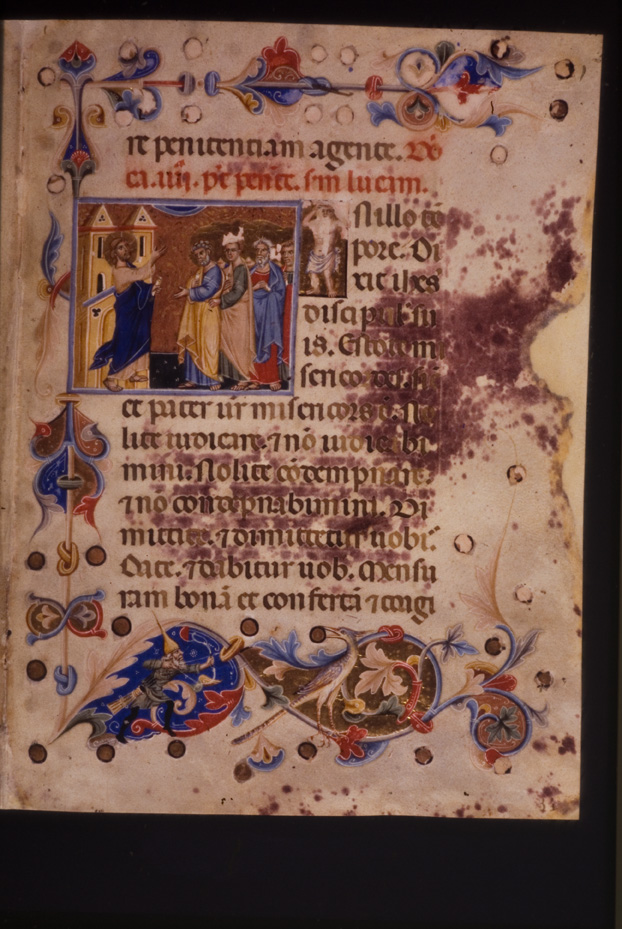 re penitentiam agente. Do
ca. iiij. pꝰ pent̄. sm̄ lucam.
In illo tē
pore. Di
xit ihēs
discipul' su
is. Estote mi
sericordes sic
et pater ūr misericors ē. No
lite iudicare. ⁊ nō iudica bi
mini. Nolite cōdempnare.
⁊ nō condēpnabimini. Di
mittite. ⁊ dimittetur uobi'.
Date. ⁊ dabitur uob. Mensu
ram bonā et confertā ⁊ coagi